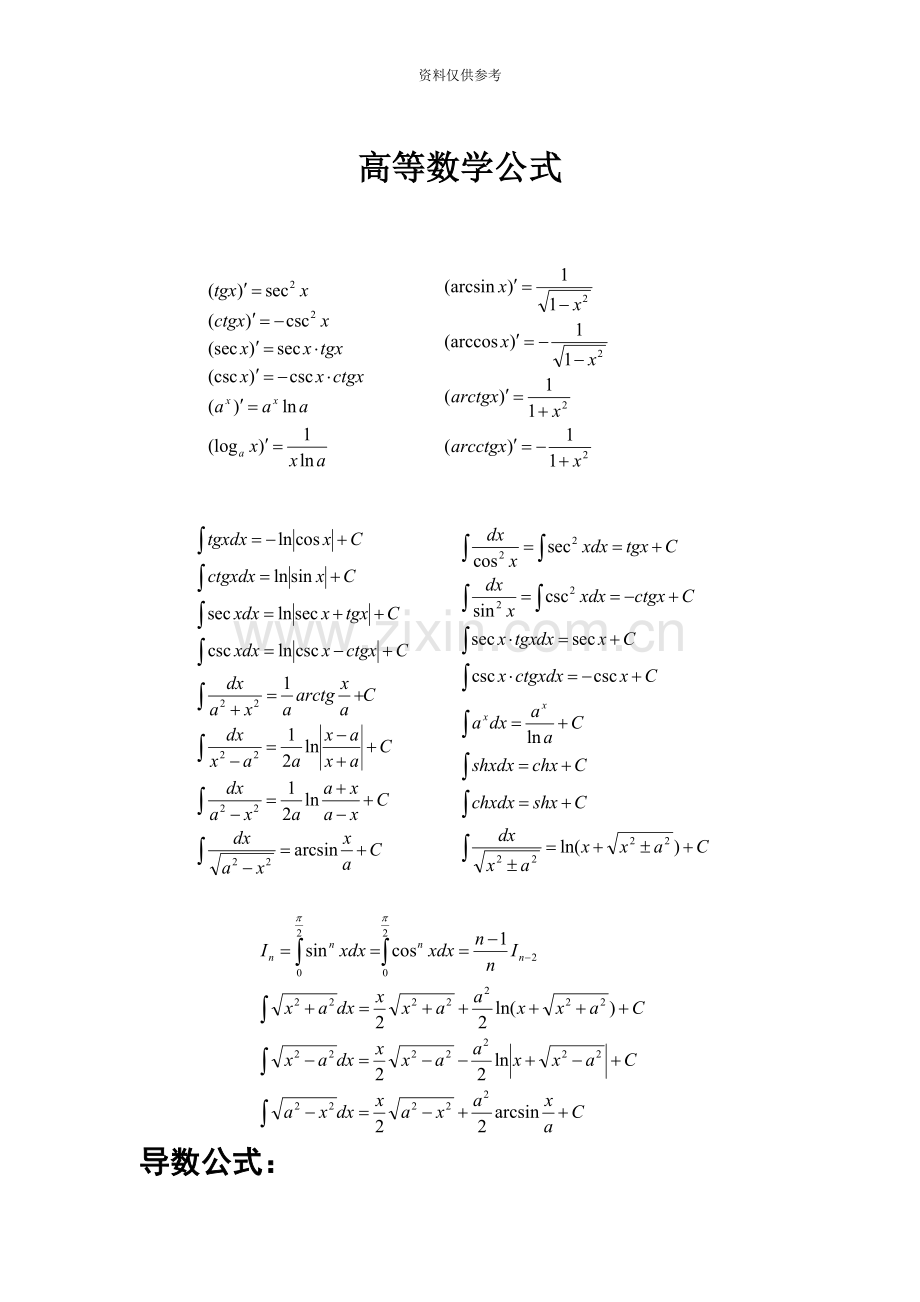 资料仅供参考
高等数学公式
(tgx)′ = sec² x
(ctgx)′ = −csc² x
(sec x)′ = sec x · tgx
(csc x)′ = −csc x · ctgx
(aˣ)′ = aˣ ln a
(logₐ x)′ = 1/(x ln a)
(arcsin x)′ = 1/√(1−x²)
(arccos x)′ = −1/√(1−x²)
(arctgx)′ = 1/(1+x²)
(arcctgx)′ = −1/(1+x²)
∫tgxdx = −ln|cos x| + C
∫ctgxdx = ln|sin x| + C
∫sec xdx = ln|sec x + tgx| + C
∫csc xdx = ln|csc x − ctgx| + C
∫dx/(a²+x²) = (1/a) arctg(x/a) + C
∫dx/(x²−a²) = (1/2a) ln|(x−a)/(x+a)| + C
∫dx/(a²−x²) = (1/2a) ln (a+x)/(a−x) + C
∫dx/√(a²−x²) = arcsin(x/a) + C
∫dx/cos² x = ∫sec² xdx = tgx + C
∫dx/sin² x = ∫csc² xdx = −ctgx + C
∫sec x · tgxdx = sec x + C
∫csc x · ctgxdx = −csc x + C
∫aˣdx = aˣ/ln a + C
∫shxdx = chx + C
∫chxdx = shx + C
∫dx/√(x²±a²) = ln(x + √(x²±a²)) + C
www.zixin.com.cn
Iₙ = ∫₀^(π/2) sinⁿ xdx = ∫₀^(π/2) cosⁿ xdx = (n−1)/n Iₙ₋₂
∫√(x²+a²)dx = (x/2)√(x²+a²) + (a²/2) ln(x + √(x²+a²)) + C
∫√(x²−a²)dx = (x/2)√(x²−a²) − (a²/2) ln|x + √(x²−a²)| + C
∫√(a²−x²)dx = (x/2)√(a²−x²) + (a²/2) arcsin(x/a) + C
导数公式：